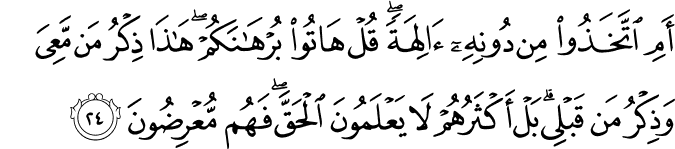 أَمِ ٱتَّخَذُوا۟ مِن دُونِهِۦٓ ءَالِهَةً ۖ قُلْ هَاتُوا۟ بُرْهَـٰنَكُمْ ۖ هَـٰذَا ذِكْرُ مَن مَّعِىَ
وَذِكْرُ مَن قَبْلِى ۗ بَلْ أَكْثَرُهُمْ لَا يَعْلَمُونَ ٱلْحَقَّ ۖ فَهُم مُّعْرِضُونَ ٢٤